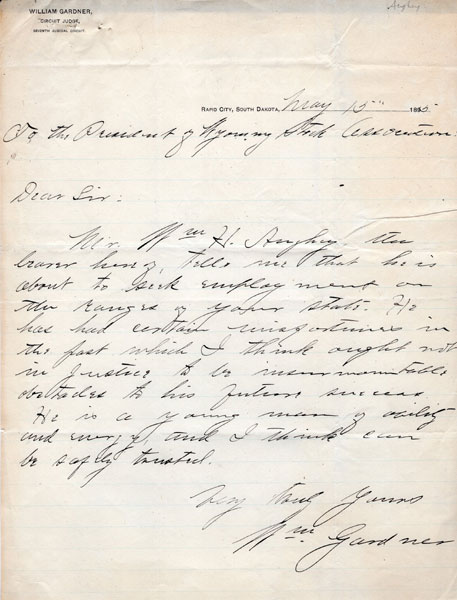 WILLIAM GARDNER,
CIRCUIT JUDGE,
SEVENTH JUDICIAL CIRCUIT.
Anghey
RAPID CITY, SOUTH DAKOTA, May 15" 1895
To the President of Wyoming Stock Association.
Dear Sir:
Mr. Wm H. Anghey the
bearer hereof, tells me that he is
about to seek employment on
the ranges of your state. He
has had certain misfortunes in
the past which I think ought not
in justice to be insurmountable
obstacles to his future success
He is a young man of ability
and energy, and I think can
be safely trusted.
Very truly Yours
Wm Gardner